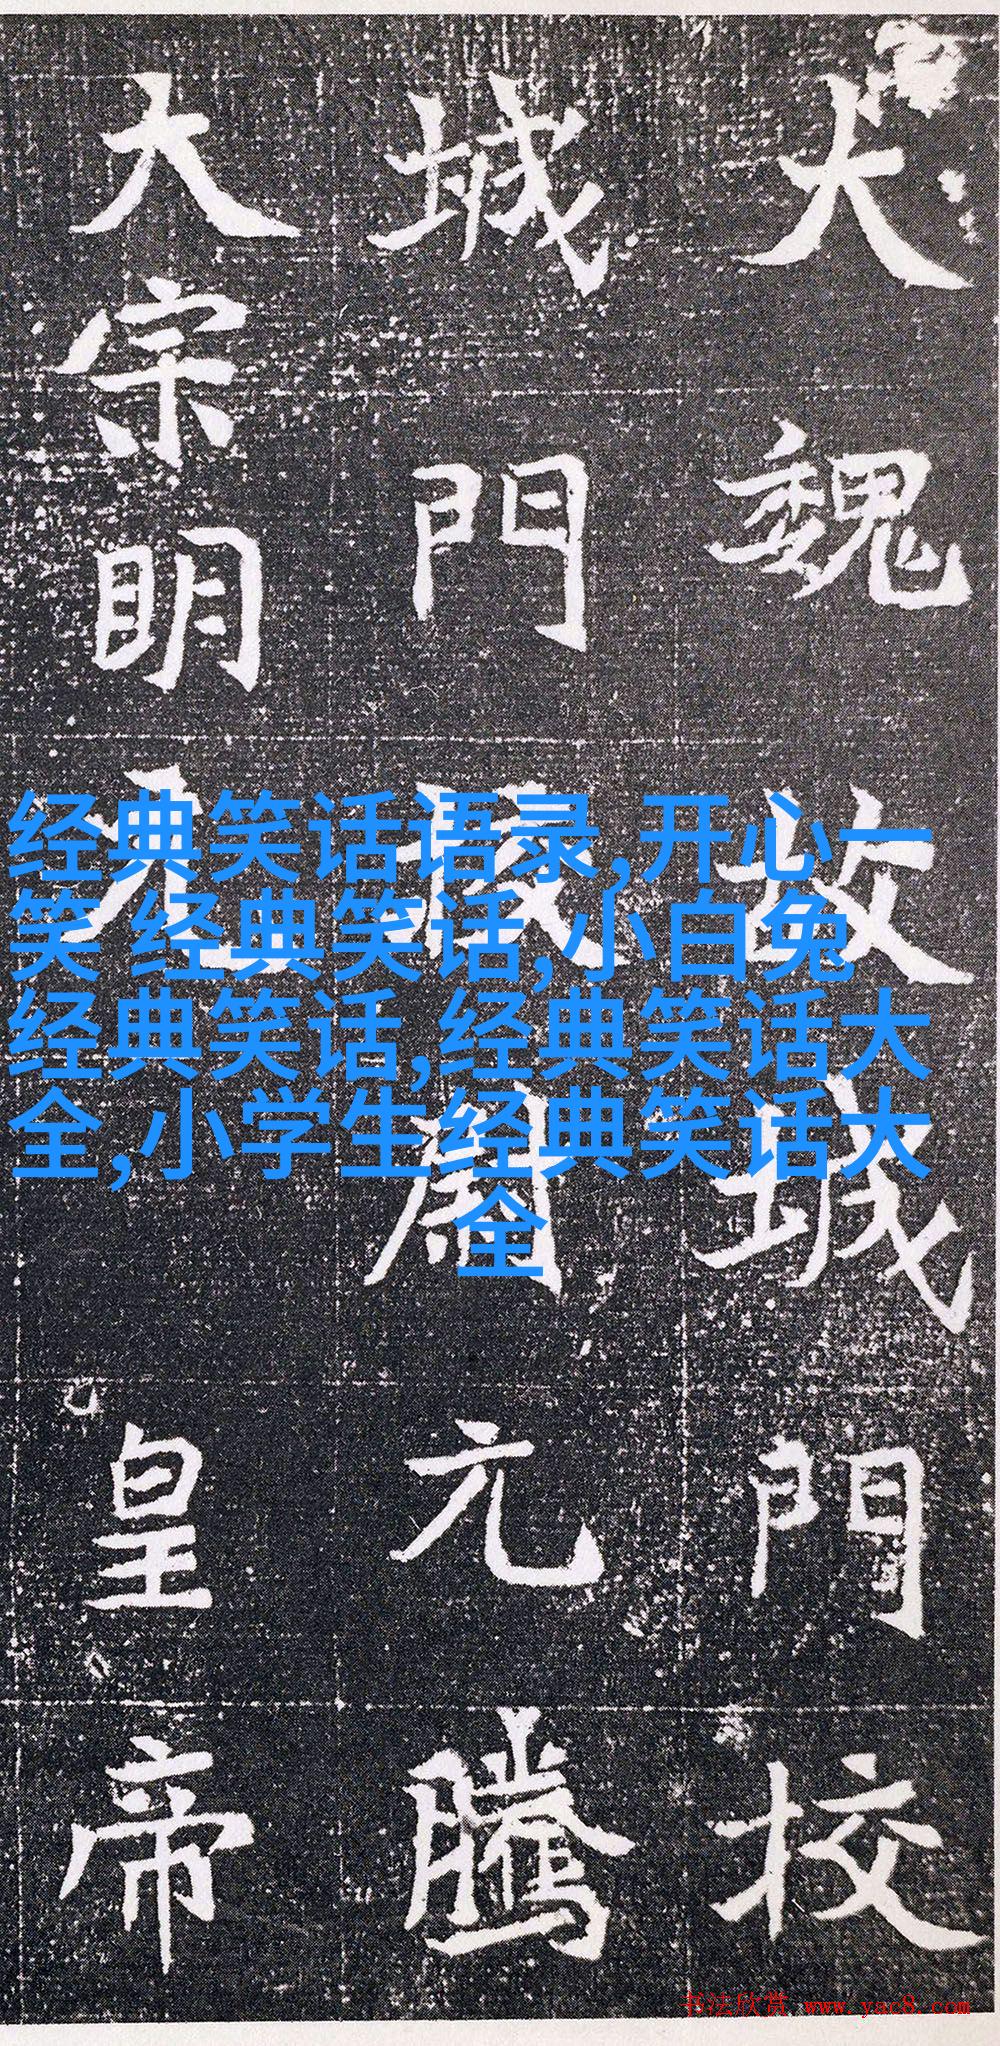 大魏故城門校
城門元騰
大宗明元皇帝
经典笑话语录,开心一
笑 经典笑话,小白兔
经典笑话,经典笑话大
全,小学生经典笑话大
全
书法欣赏 www.yac8.com